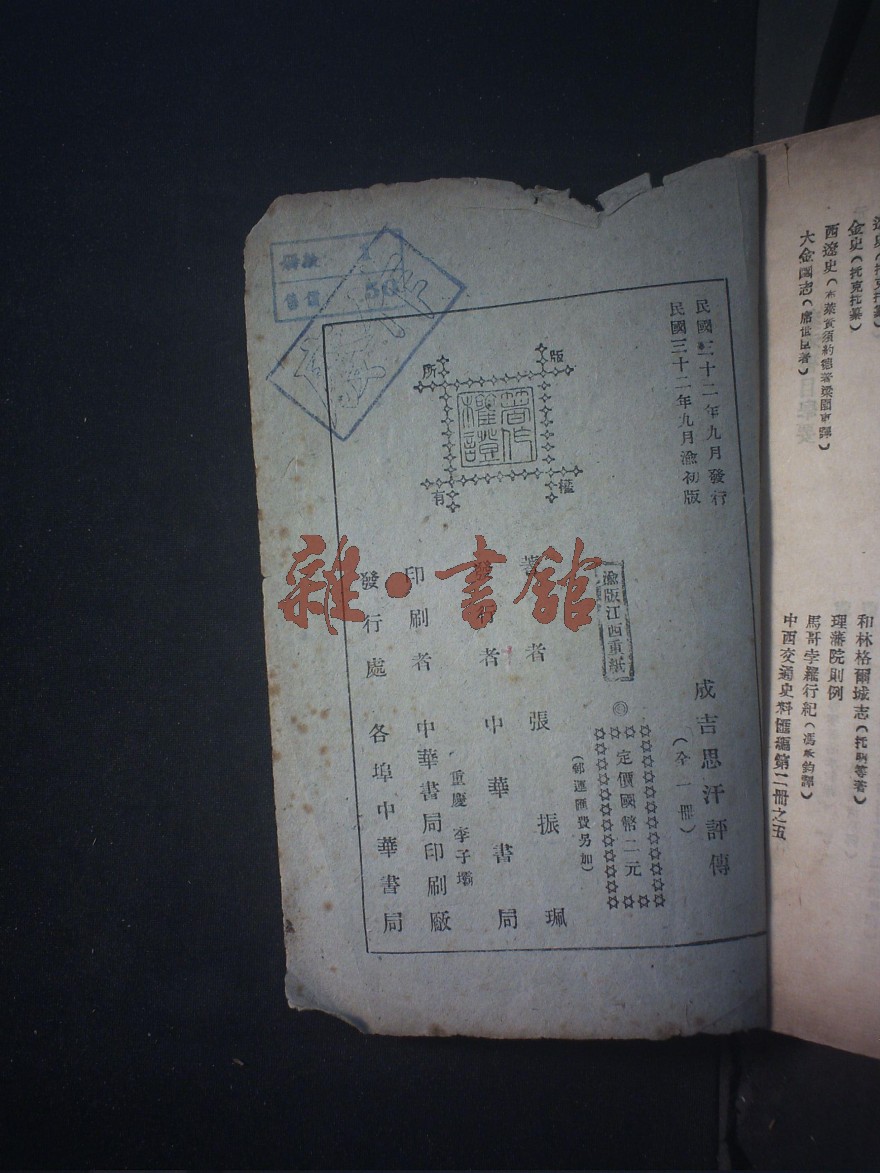 民國三十二年九月發行
民國三十二年九月渝初版
成吉思汗評傳
(全一冊)
定價國幣二元
(郵運匯費另加)
渝版江西重紙
著者 張振珮
發行者 中華書局
重慶 李子壩
印刷者 中華書局印刷廠
發行處 各埠中華書局
版權所有
著作權證
售價 50
雜·書館
金史(托克托纂)
西遼史(布萊資須約德著梁園東譯)
大金國志(席世臣著)
和林格爾城志(托明等著)
理藩院則例
馬哥孛羅行紀(馮承鈞譯)
中西交通史料匯編第二冊之五